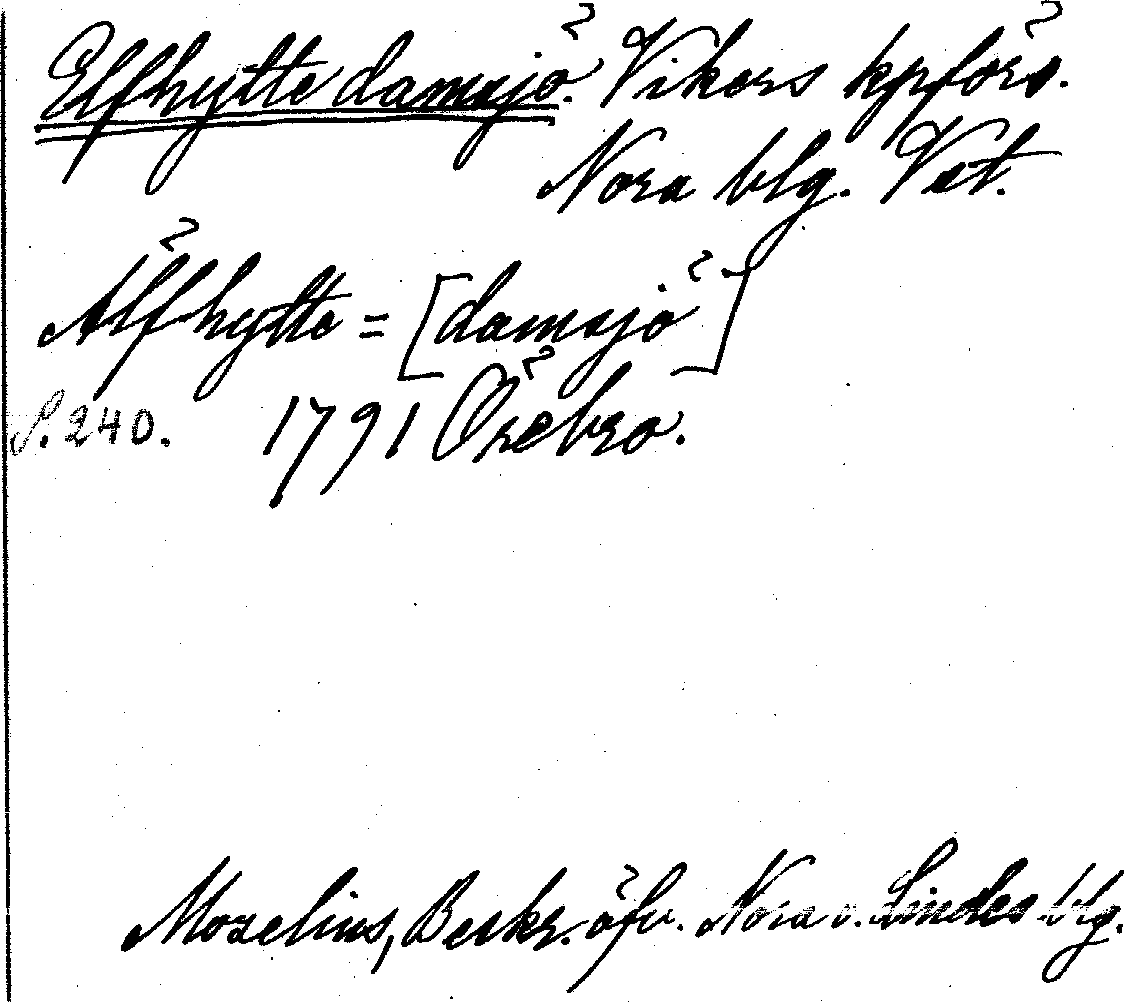 Elfhytte damsjö. Vikers kpförs.
Nora blg. Vst.
Älfhytte = [damsjö]
S. 240. 1791 Örebro.
Moselius, Beskr. öfv. Nora o. Lindes blg.